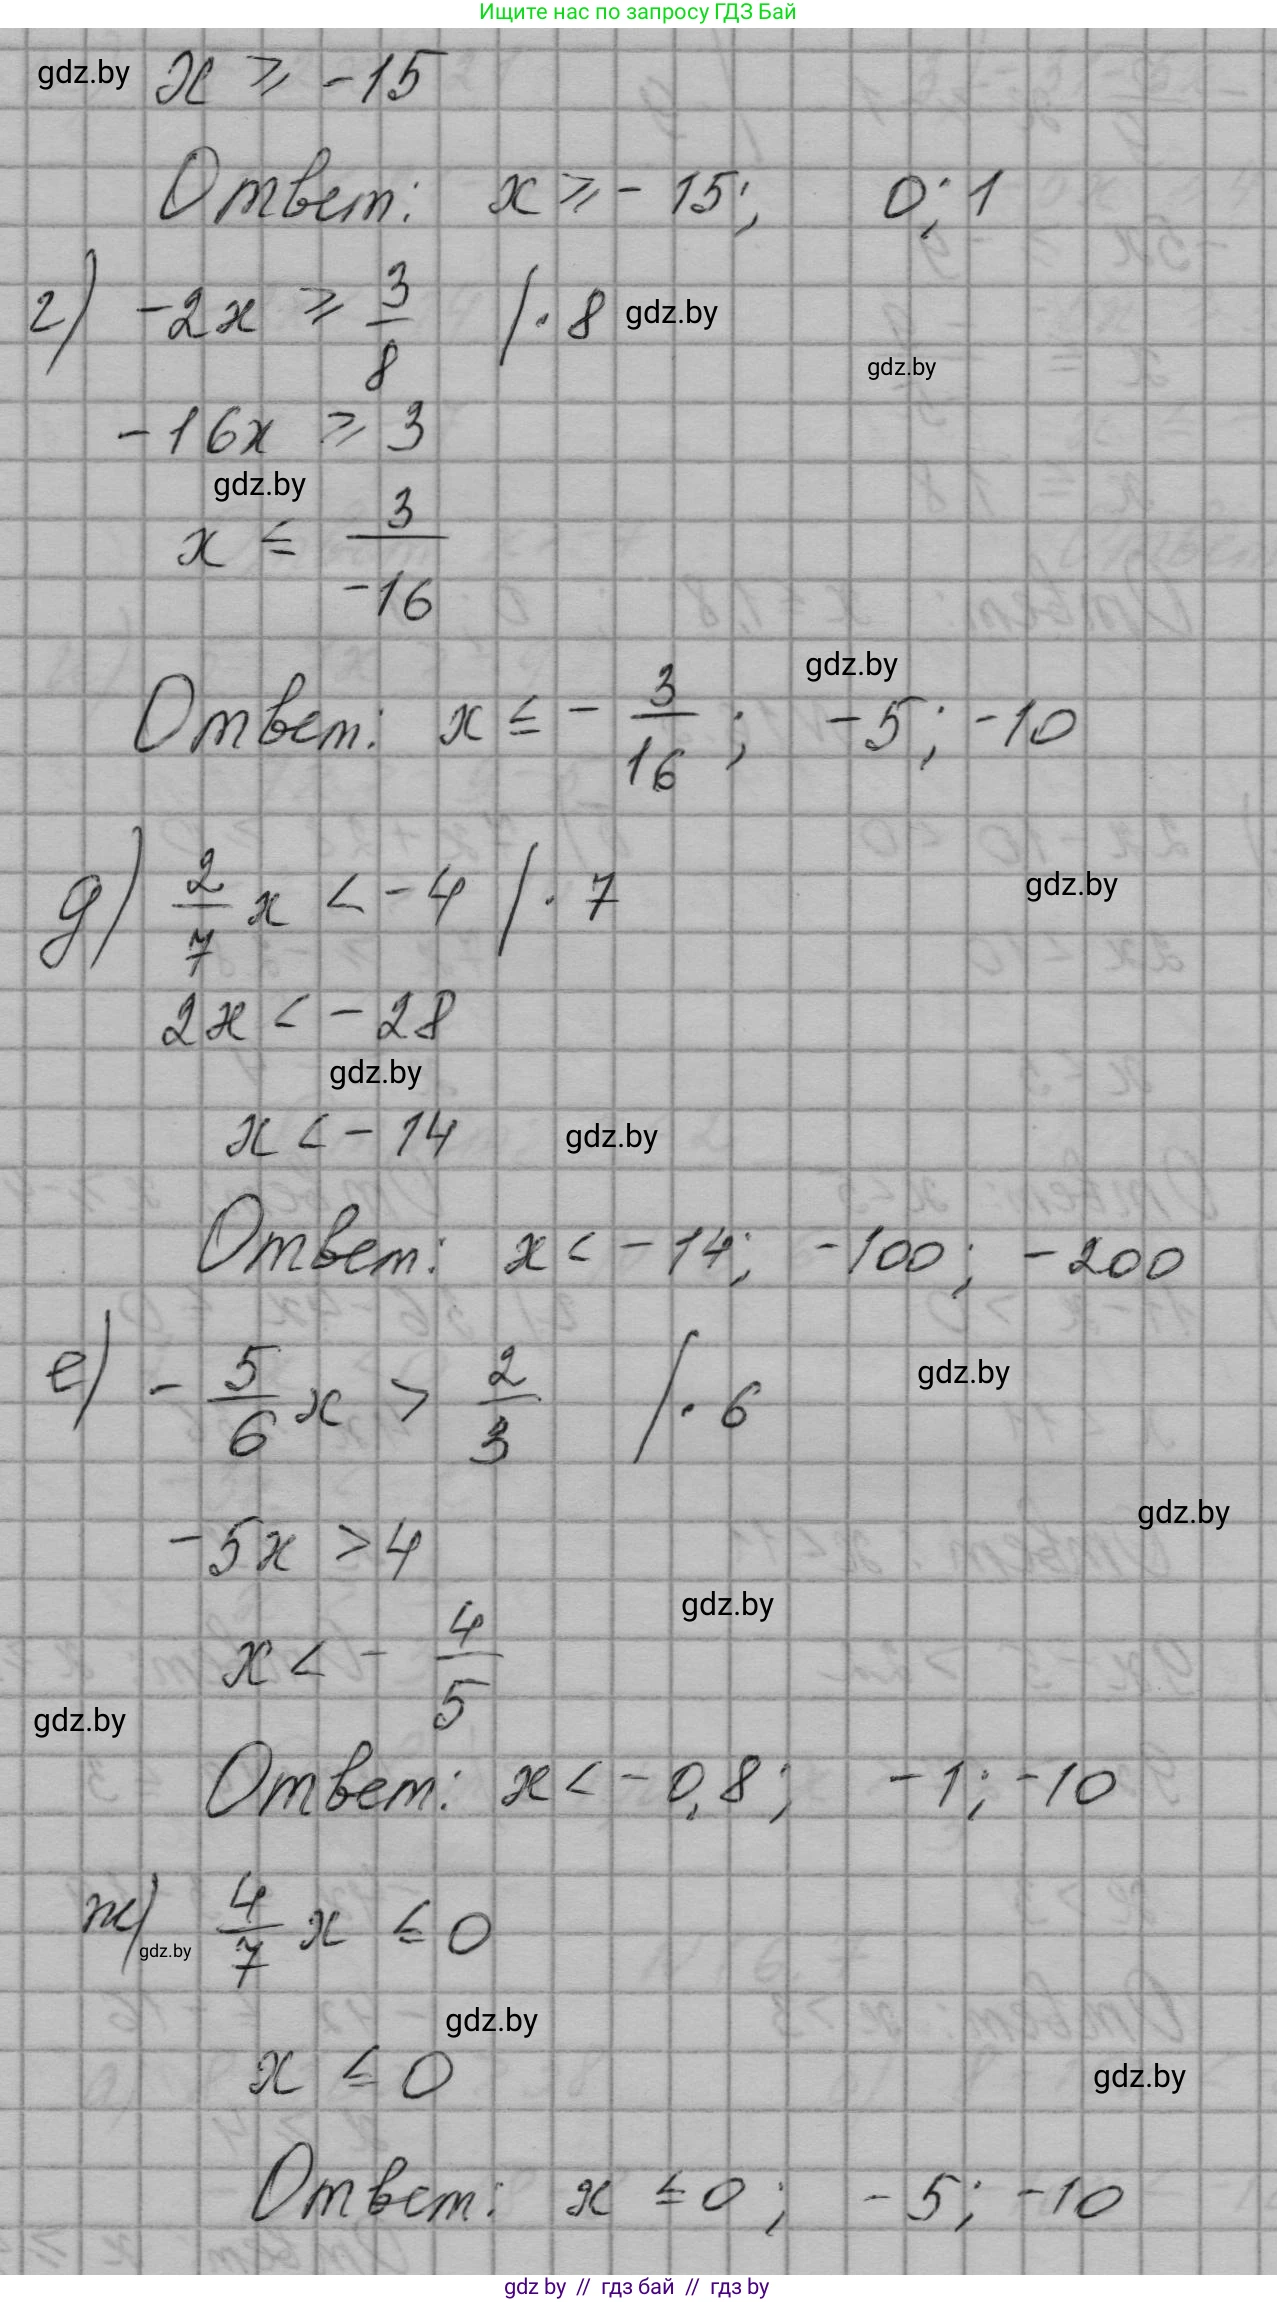 Ищите нас по запросу ГДЗ Бай
gdz.by
x ≥ -15
Ответ: x ≥ - 15; 0; 1
г) -2x ≥ 3/8 | · 8
gdz.by
gdz.by
-16x ≥ 3
gdz.by
x ≤ 3/-16
gdz.by
Ответ: x ≤ - 3/16; -5; -10
д) 2/7 x < -4 | · 7
gdz.by
2x < -28
gdz.by
x < -14
gdz.by
Ответ: x < -14; -100; -200
е) - 5/6 x > 2/3 | · 6
gdz.by
gdz.by
-5x > 4
gdz.by
x < - 4/5
gdz.by
Ответ: x < -0,8; -1; -10
ж) 4/7 x ≤ 0
gdz.by
gdz.by
x ≤ 0
gdz.by
Ответ: x ≤ 0; -5; -10
gdz.by // гдз бай // гдз.by